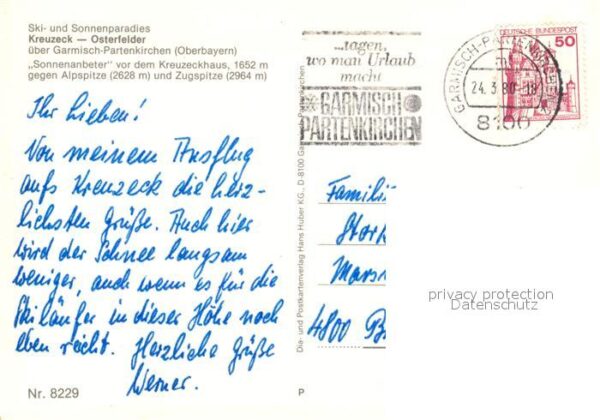 Ski- und Sonnenparadies
Kreuzeck — Osterfelder
über Garmisch-Partenkirchen (Oberbayern)
„Sonnenanbeter" vor dem Kreuzeckhaus, 1652 m
gegen Alpspitze (2628 m) und Zugspitze (2964 m)
Ihr Lieben!
Von meinem Ausflug
aufs Kreuzeck die herz-
lichsten Grüße. Auch hier
wird der Schnee langsam
weniger, auch wenn es für die
Skiläufer in dieser Höhe noch
eben reicht. Herzliche Grüße
Werner.
Nr. 8229
P
Dia- und Postkartenverlag Hans Huber KG., D-8100 Garmisch-Partenkirchen
...tagen,
wo man Urlaub
macht
GARMISCH
PARTENKIRCHEN
GARMISCH-PARTENKIRCHEN
24.3.80.-18
8100
DEUTSCHE BUNDESPOST
50
Famili
Stork
Mars
4800 B
privacy protection
Datenschutz